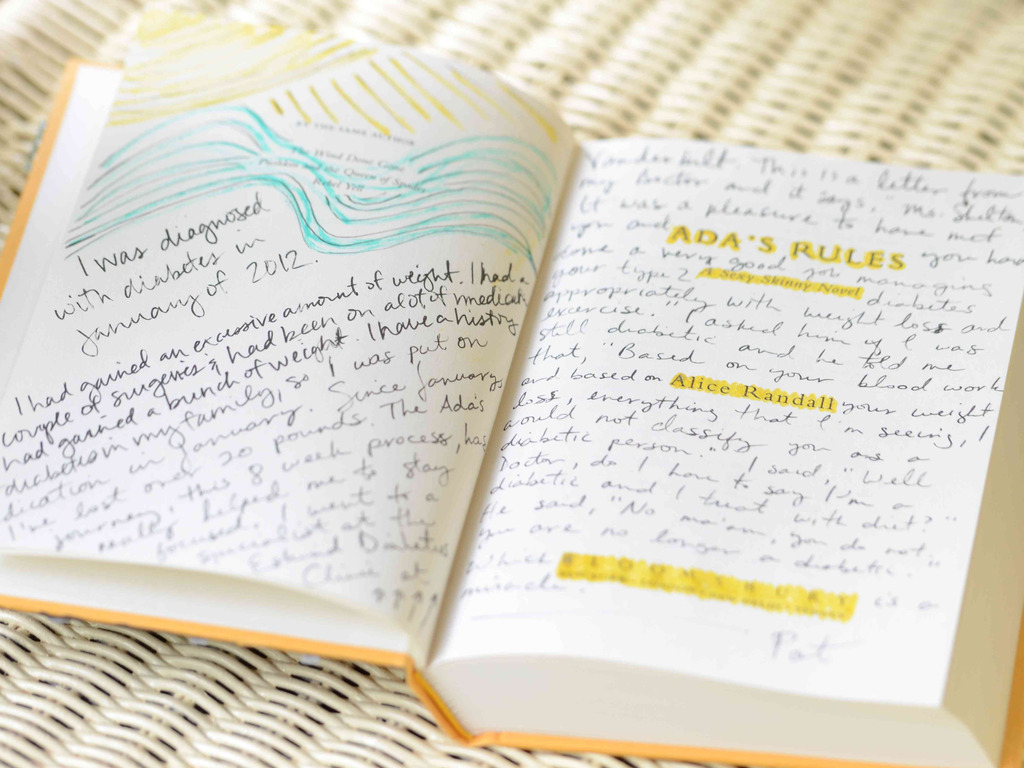 BY THE SAME AUTHOR
The Wind Done Gone
Pushkin and the Queen of Spades
Rebel Yell
I was diagnosed
with diabetes in
January of 2012.
I had gained an excessive amount of weight. I had a
couple of surgeries & had been on a lot of medication
had gained a bunch of weight. I have a history
diabetes in my family, so I was put on
dication in January. Since January,
I've lost over 20 pounds. The Ada's
journey, this 8 week process, has
really helped me to stay
focused. I went to a
specialist at the
Eskind Diabetes
Clinic at
Vanderbilt. This is a letter from
my Doctor and it says, Ms. Shelton
It was a pleasure to have met
you and you have
ADA'S RULES
done a very good job managing
A Sexy Skinny Novel
your type 2 diabetes
appropriately with weight loss and
exercise. I asked him if I was
still diabetic and he told me
that, "Based on your blood work
and based on your weight
Alice Randall
loss, everything that I'm seeing, I
would not classify you as a
diabetic person." I said, "Well
Doctor, do I have to say I'm a
diabetic and I treat with diet?"
He said, "No ma'am, you do not."
You are no longer a diabetic.
Which is a
BLOOMSBURY
miracle.
Pat